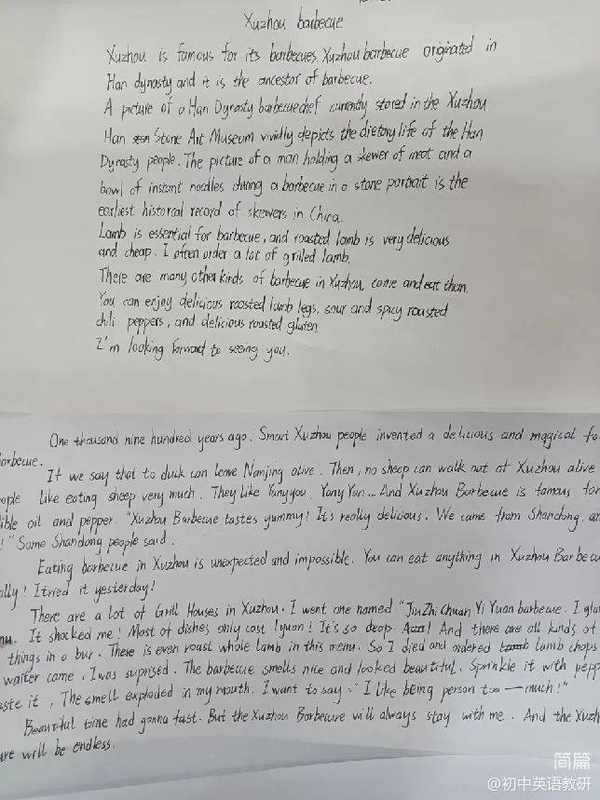 Xuzhou barbecue
Xuzhou is famous for its barbecues. Xuzhou barbecue originated in
Han dynasty and it is the ancestor of barbecue.
A picture of a Han Dynasty barbecue chef currently stored in the Xuzhou
Han Stone Art Museum vividly depicts the dietary life of the Han
Dynasty people. The picture of a man holding a skewer of meat and a
bowl of instant noodles during a barbecue in a stone portrait is the
earliest historical record of skewers in China.
Lamb is essential for barbecue, and roasted lamb is very delicious
and cheap. I often order a lot of grilled lamb.
There are many other kinds of barbecue in Xuzhou, come and eat them.
You can enjoy delicious roasted lamb legs, sour and spicy roasted
chili peppers, and delicious roasted gluten
I'm looking forward to seeing you.
One thousand nine hundred years ago. Smart Xuzhou people invented a delicious and magical fo
barbecue.
If we say that to duck can leave Nanjing alive. Then, no sheep can walk out at Xuzhou alive
eople like eating sheep very much. They like Yangyou. Yang Yan... And Xuzhou Barbecue is famous for
ible oil and pepper. "Xuzhou Barbecue tastes yummy! It's really delicious. We came from Shandong, an
!" Some Shandong people said.
Eating barbecue in Xuzhou is unexpected and impossible. You can eat anything in Xuzhou Barbecue
lly! I tried it yesterday!
There are a lot of Grill Houses in Xuzhou. I went one named "JiuZhi Chuan Yi Yuan barbecue. I
nu. It shocked me! Most of dishes only cost 1yuan! It's so cheap. And there are all kinds of
things in a bur. There is even roast whole lamb in this menu. So I died and ordered lamb chops
waiter came, I was suprised. The barbecue smells nice and looked beautiful. Sprinkle it with pepp
aste it, The smell exploded in my mouth. I want to say: "I like being person too — much!"
Beautiful time had gonna fast. But the Xuzhou Barbecure will always stay with me. And the Xuzh
ure will be endless.
简篇
@初中英语教研